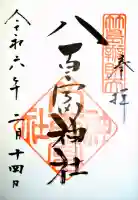 奉拝
八百富神社
令和六年二月十四日